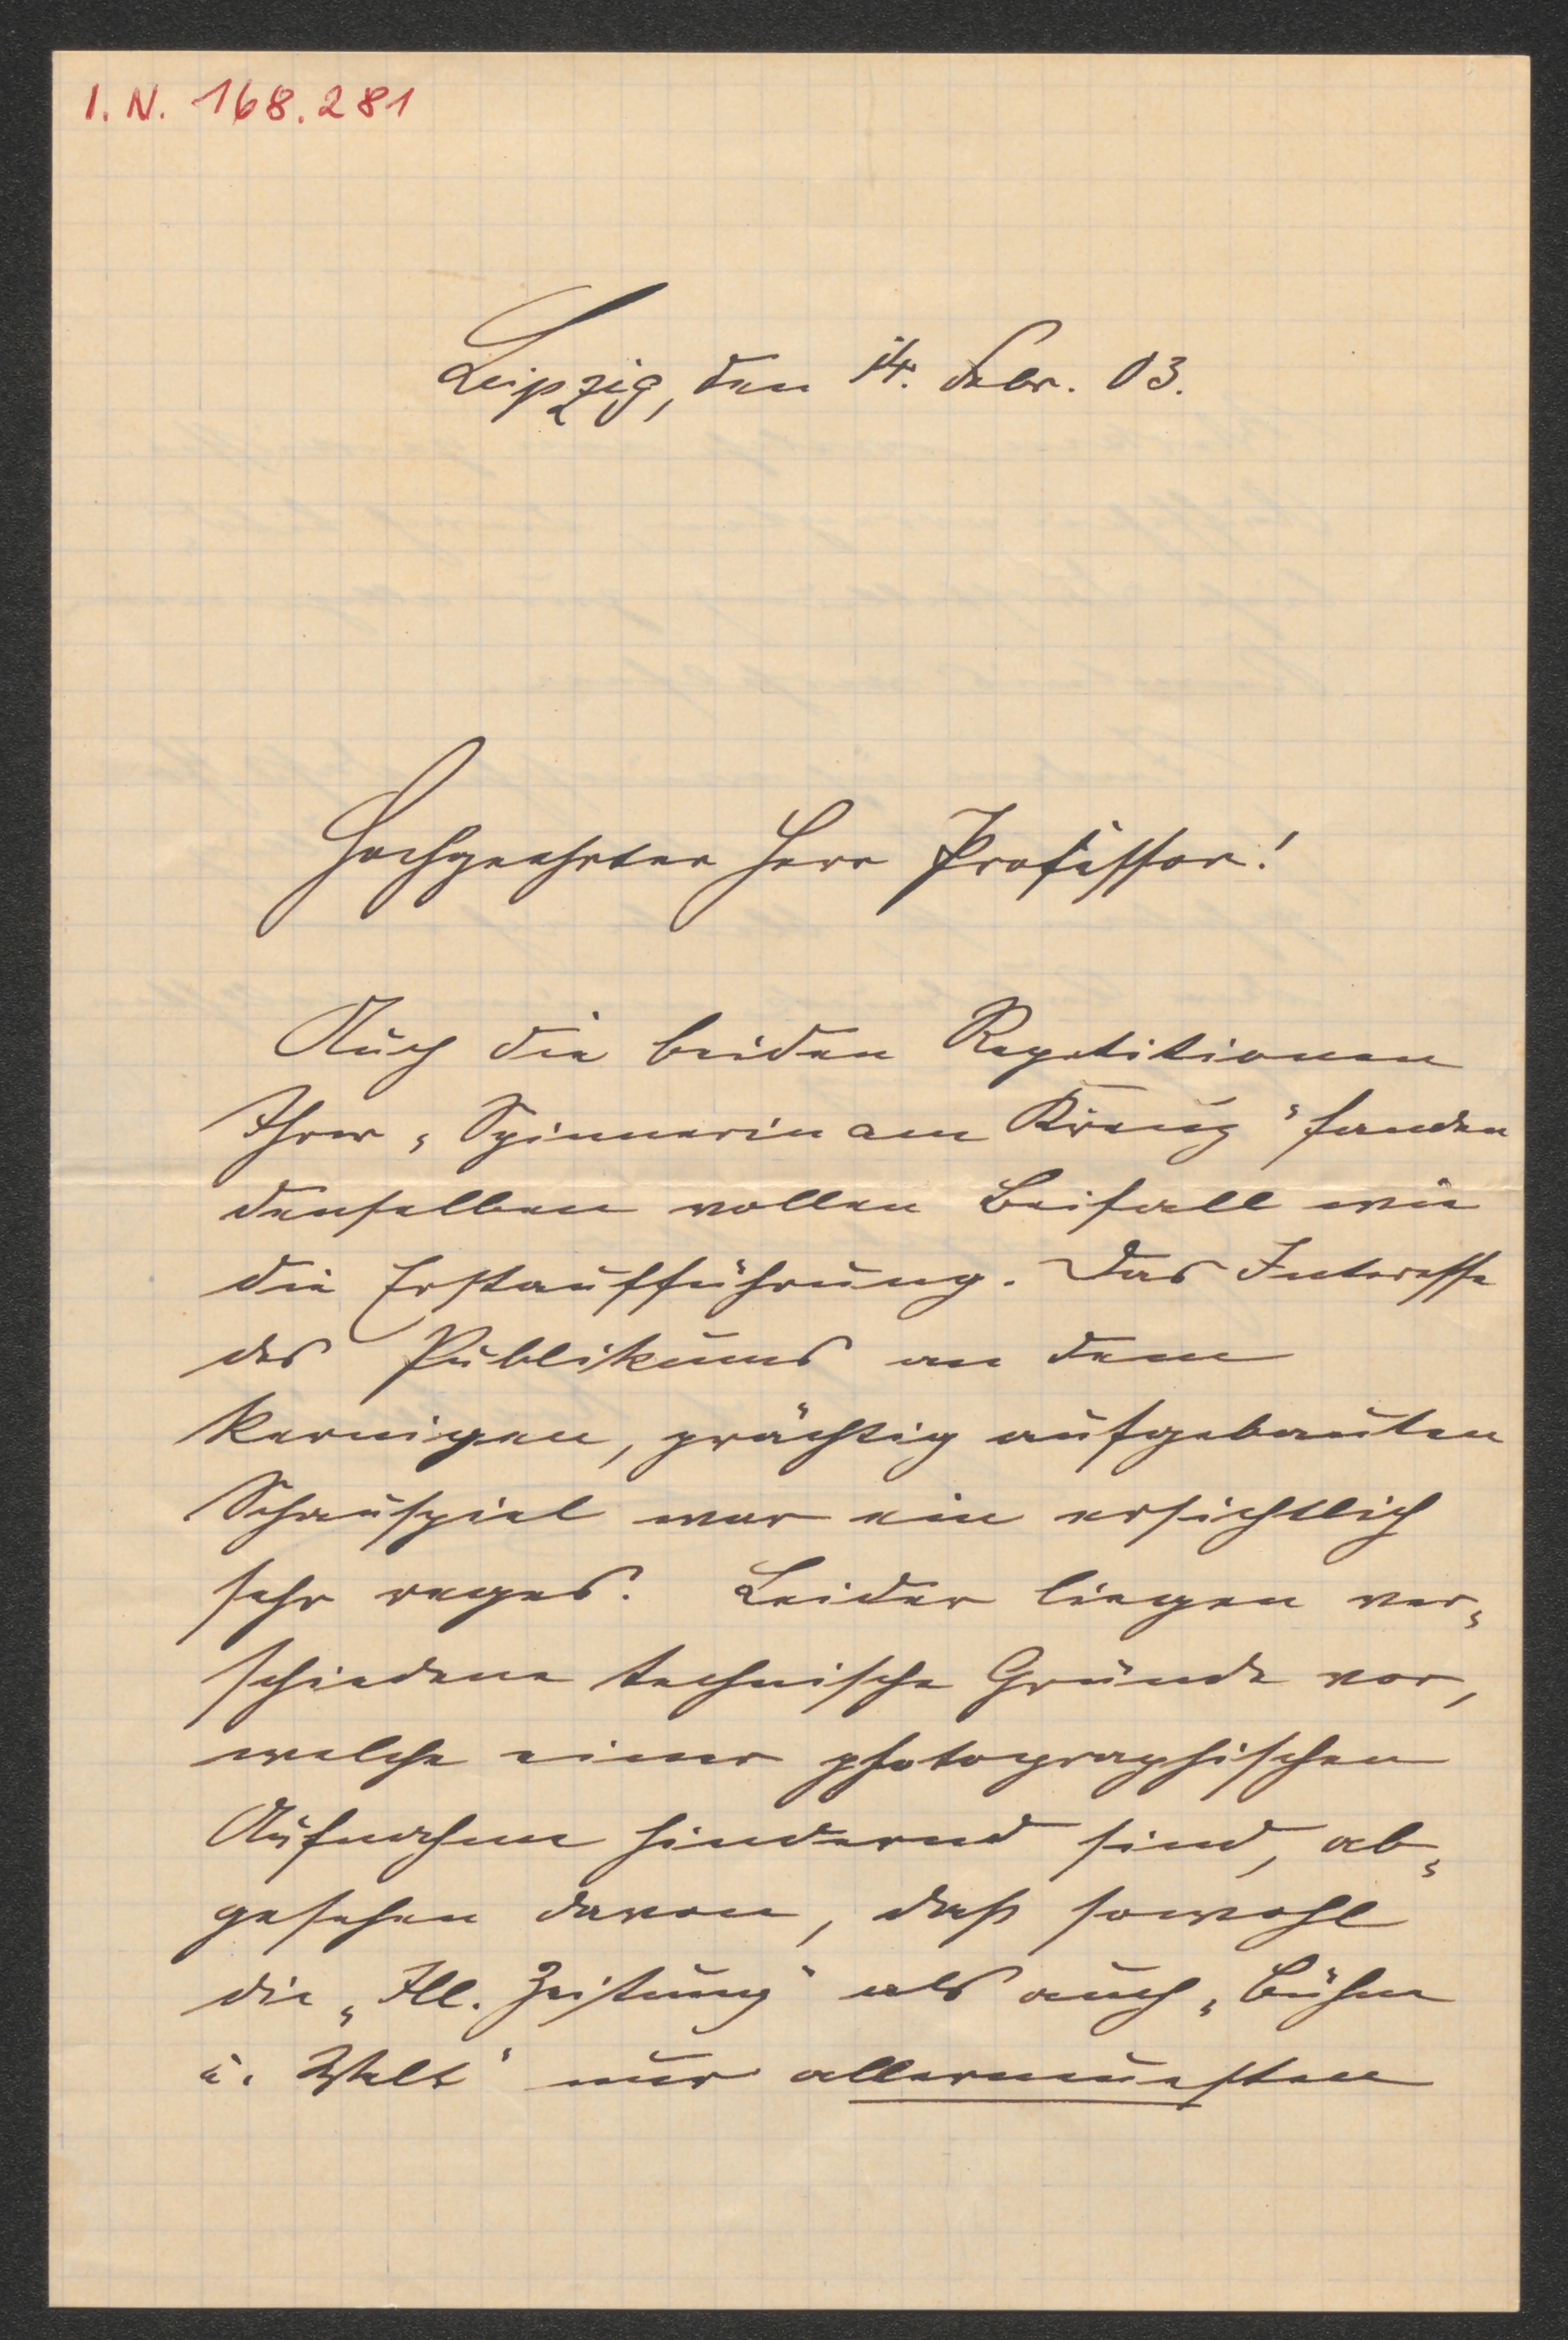 I. N. 168.281
Leipzig, den 14. Febr. 03.
Hochgeehrter Herr Professor!
Auch die beiden Repetitionen
Ihrer „Spinnerin am Kreuz" fanden
denselben vollen Beifall wie
die Erstaufführung. Das Interesse
des Publikums an dem
kernigen, prächtig aufgebauten
Schauspiel war ein ersichtlich
sehr reges. Leider liegen ver-
schiedene technische Gründe vor,
welche einer photographischen
Aufnahme hindernd sind, ab-
gesehen davon, daß sowohl
die „Ill. Zeitung" als auch „Bühne
u. Welt" nur allerneuesten